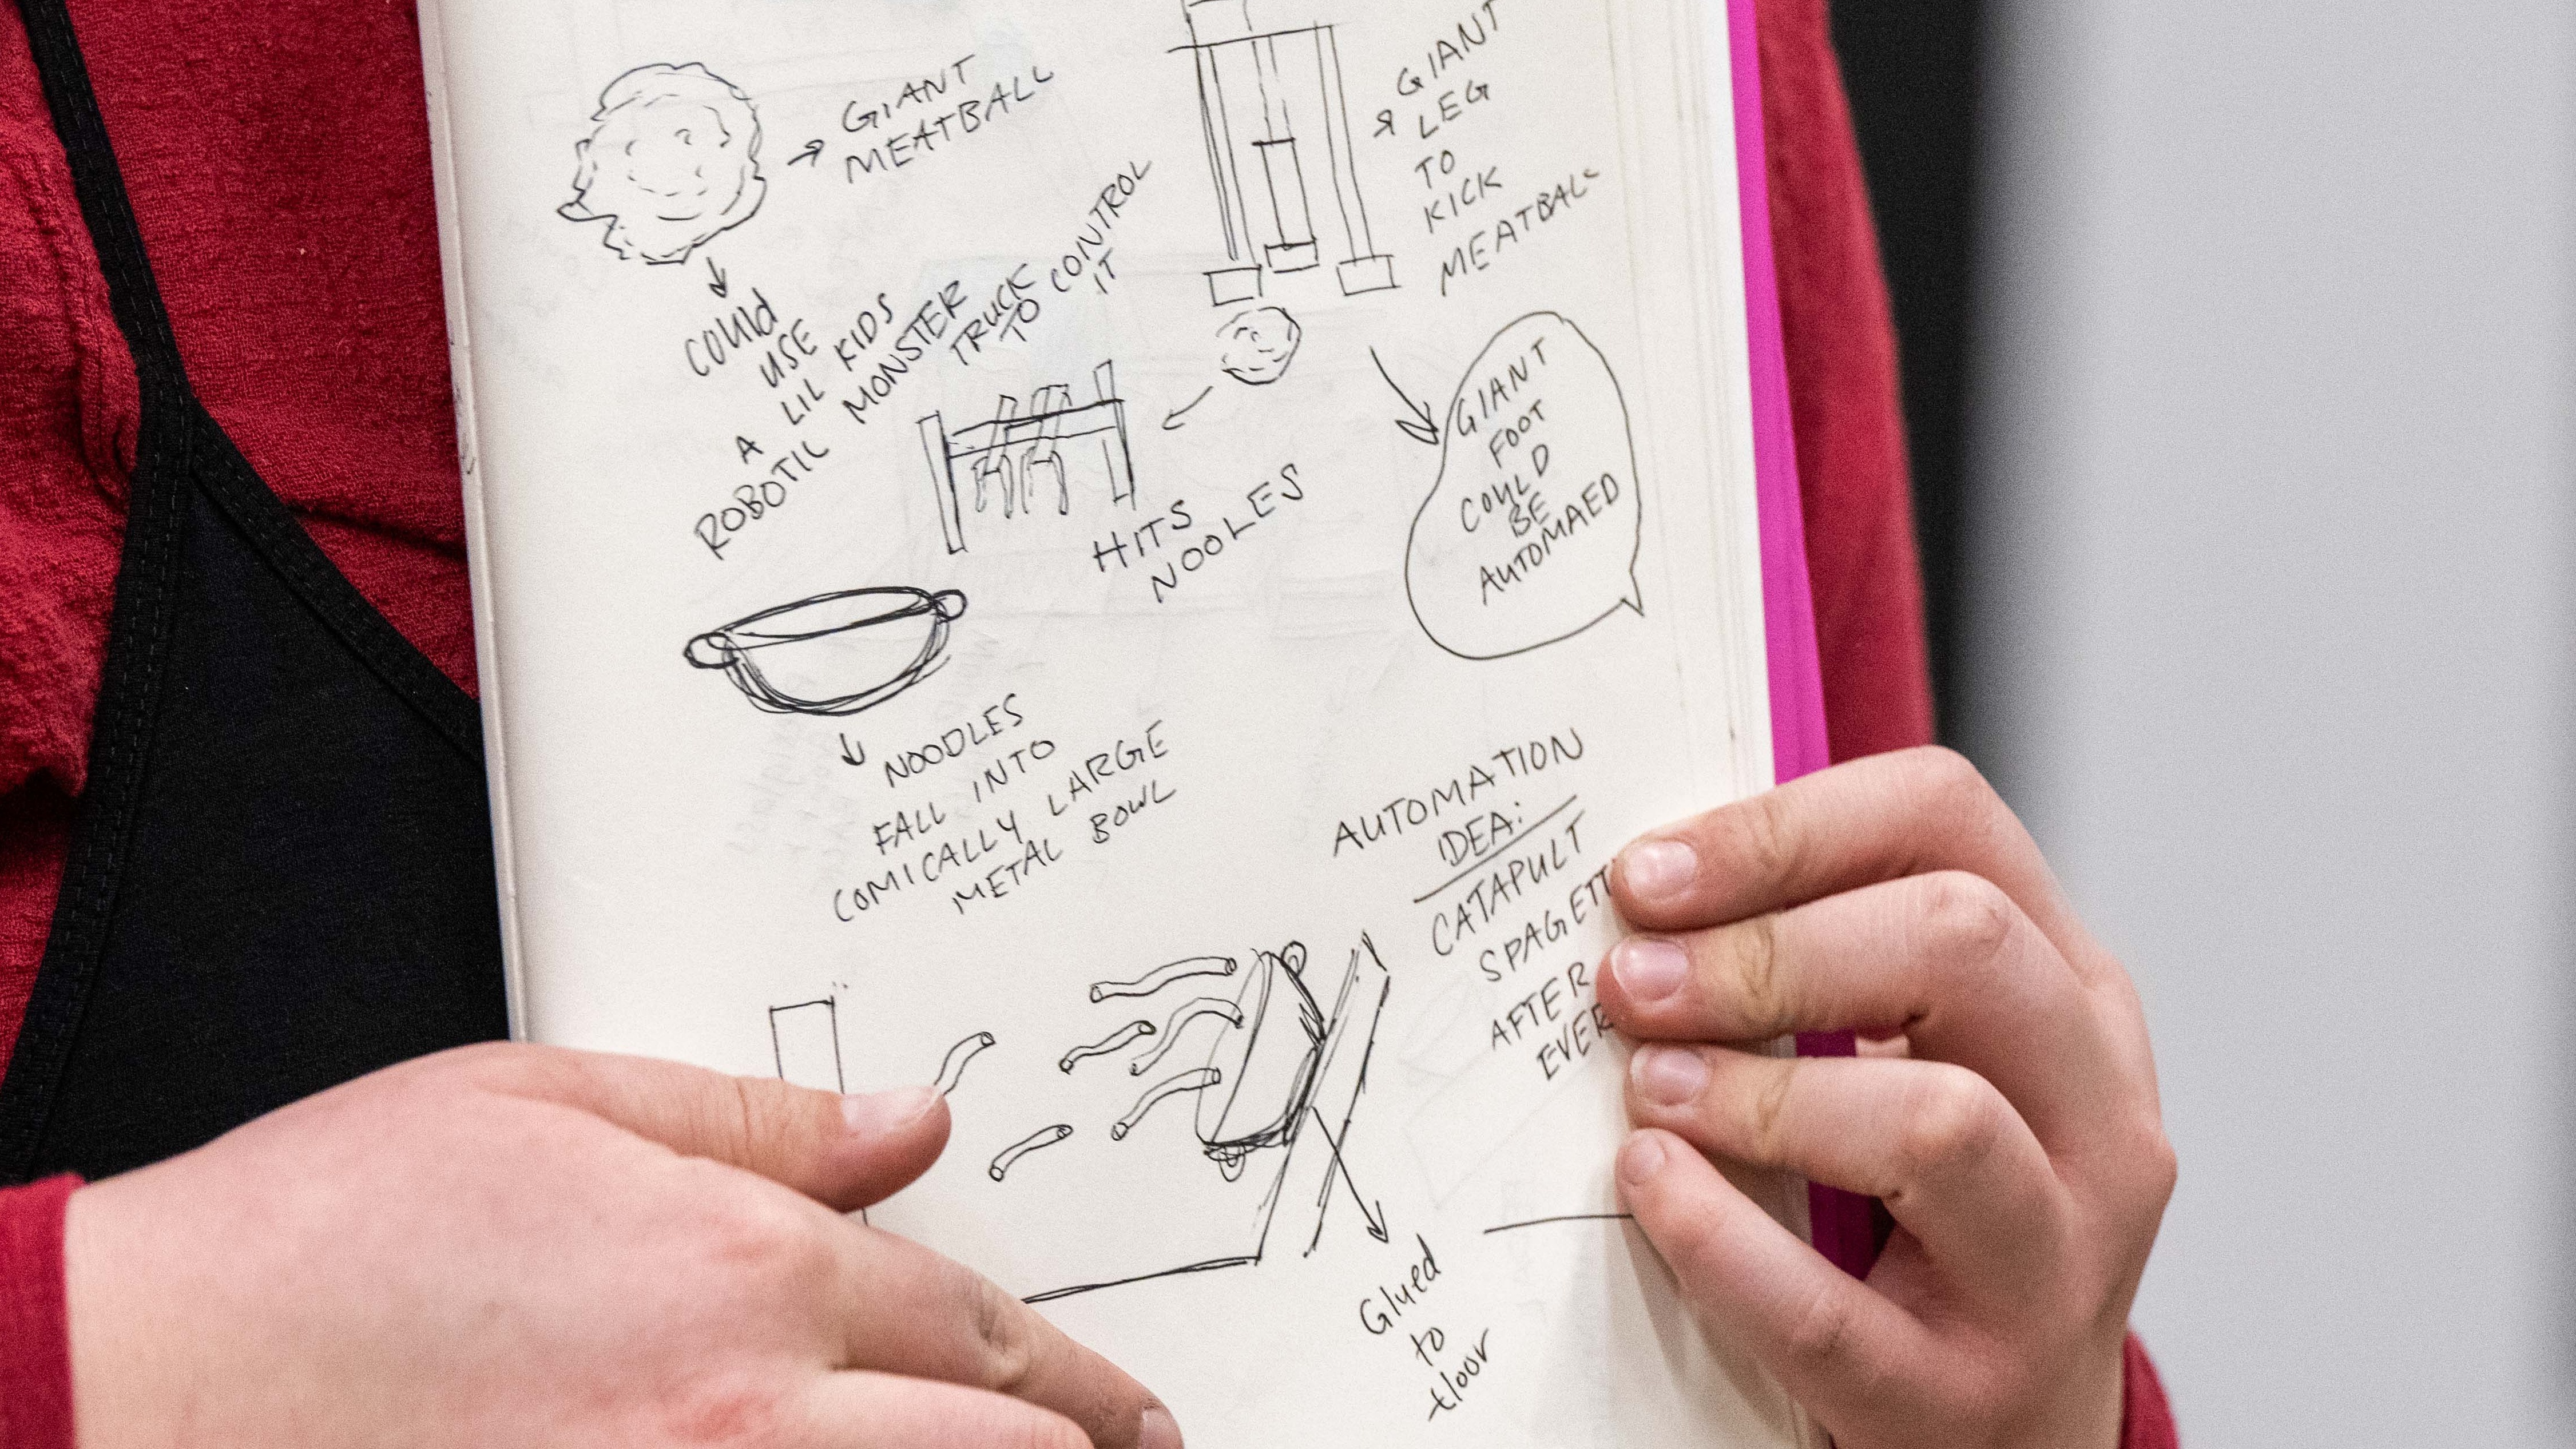 GIANT
MEATBALL
COULD
USE
A LIL KIDS
ROBOTIC MONSTER
TRUCK
TO CONTROL
IT
GIANT
LEG
TO
KICK
MEATBALL
HITS
NOOLES
GIANT
FOOT
COULD
BE
AUTOMAED
NOODLES
FALL INTO
COMICALLY LARGE
METAL BOWL
AUTOMATION
IDEA:
CATAPULT
SPAGETT
AFTER
EVER
Glued
to
floor